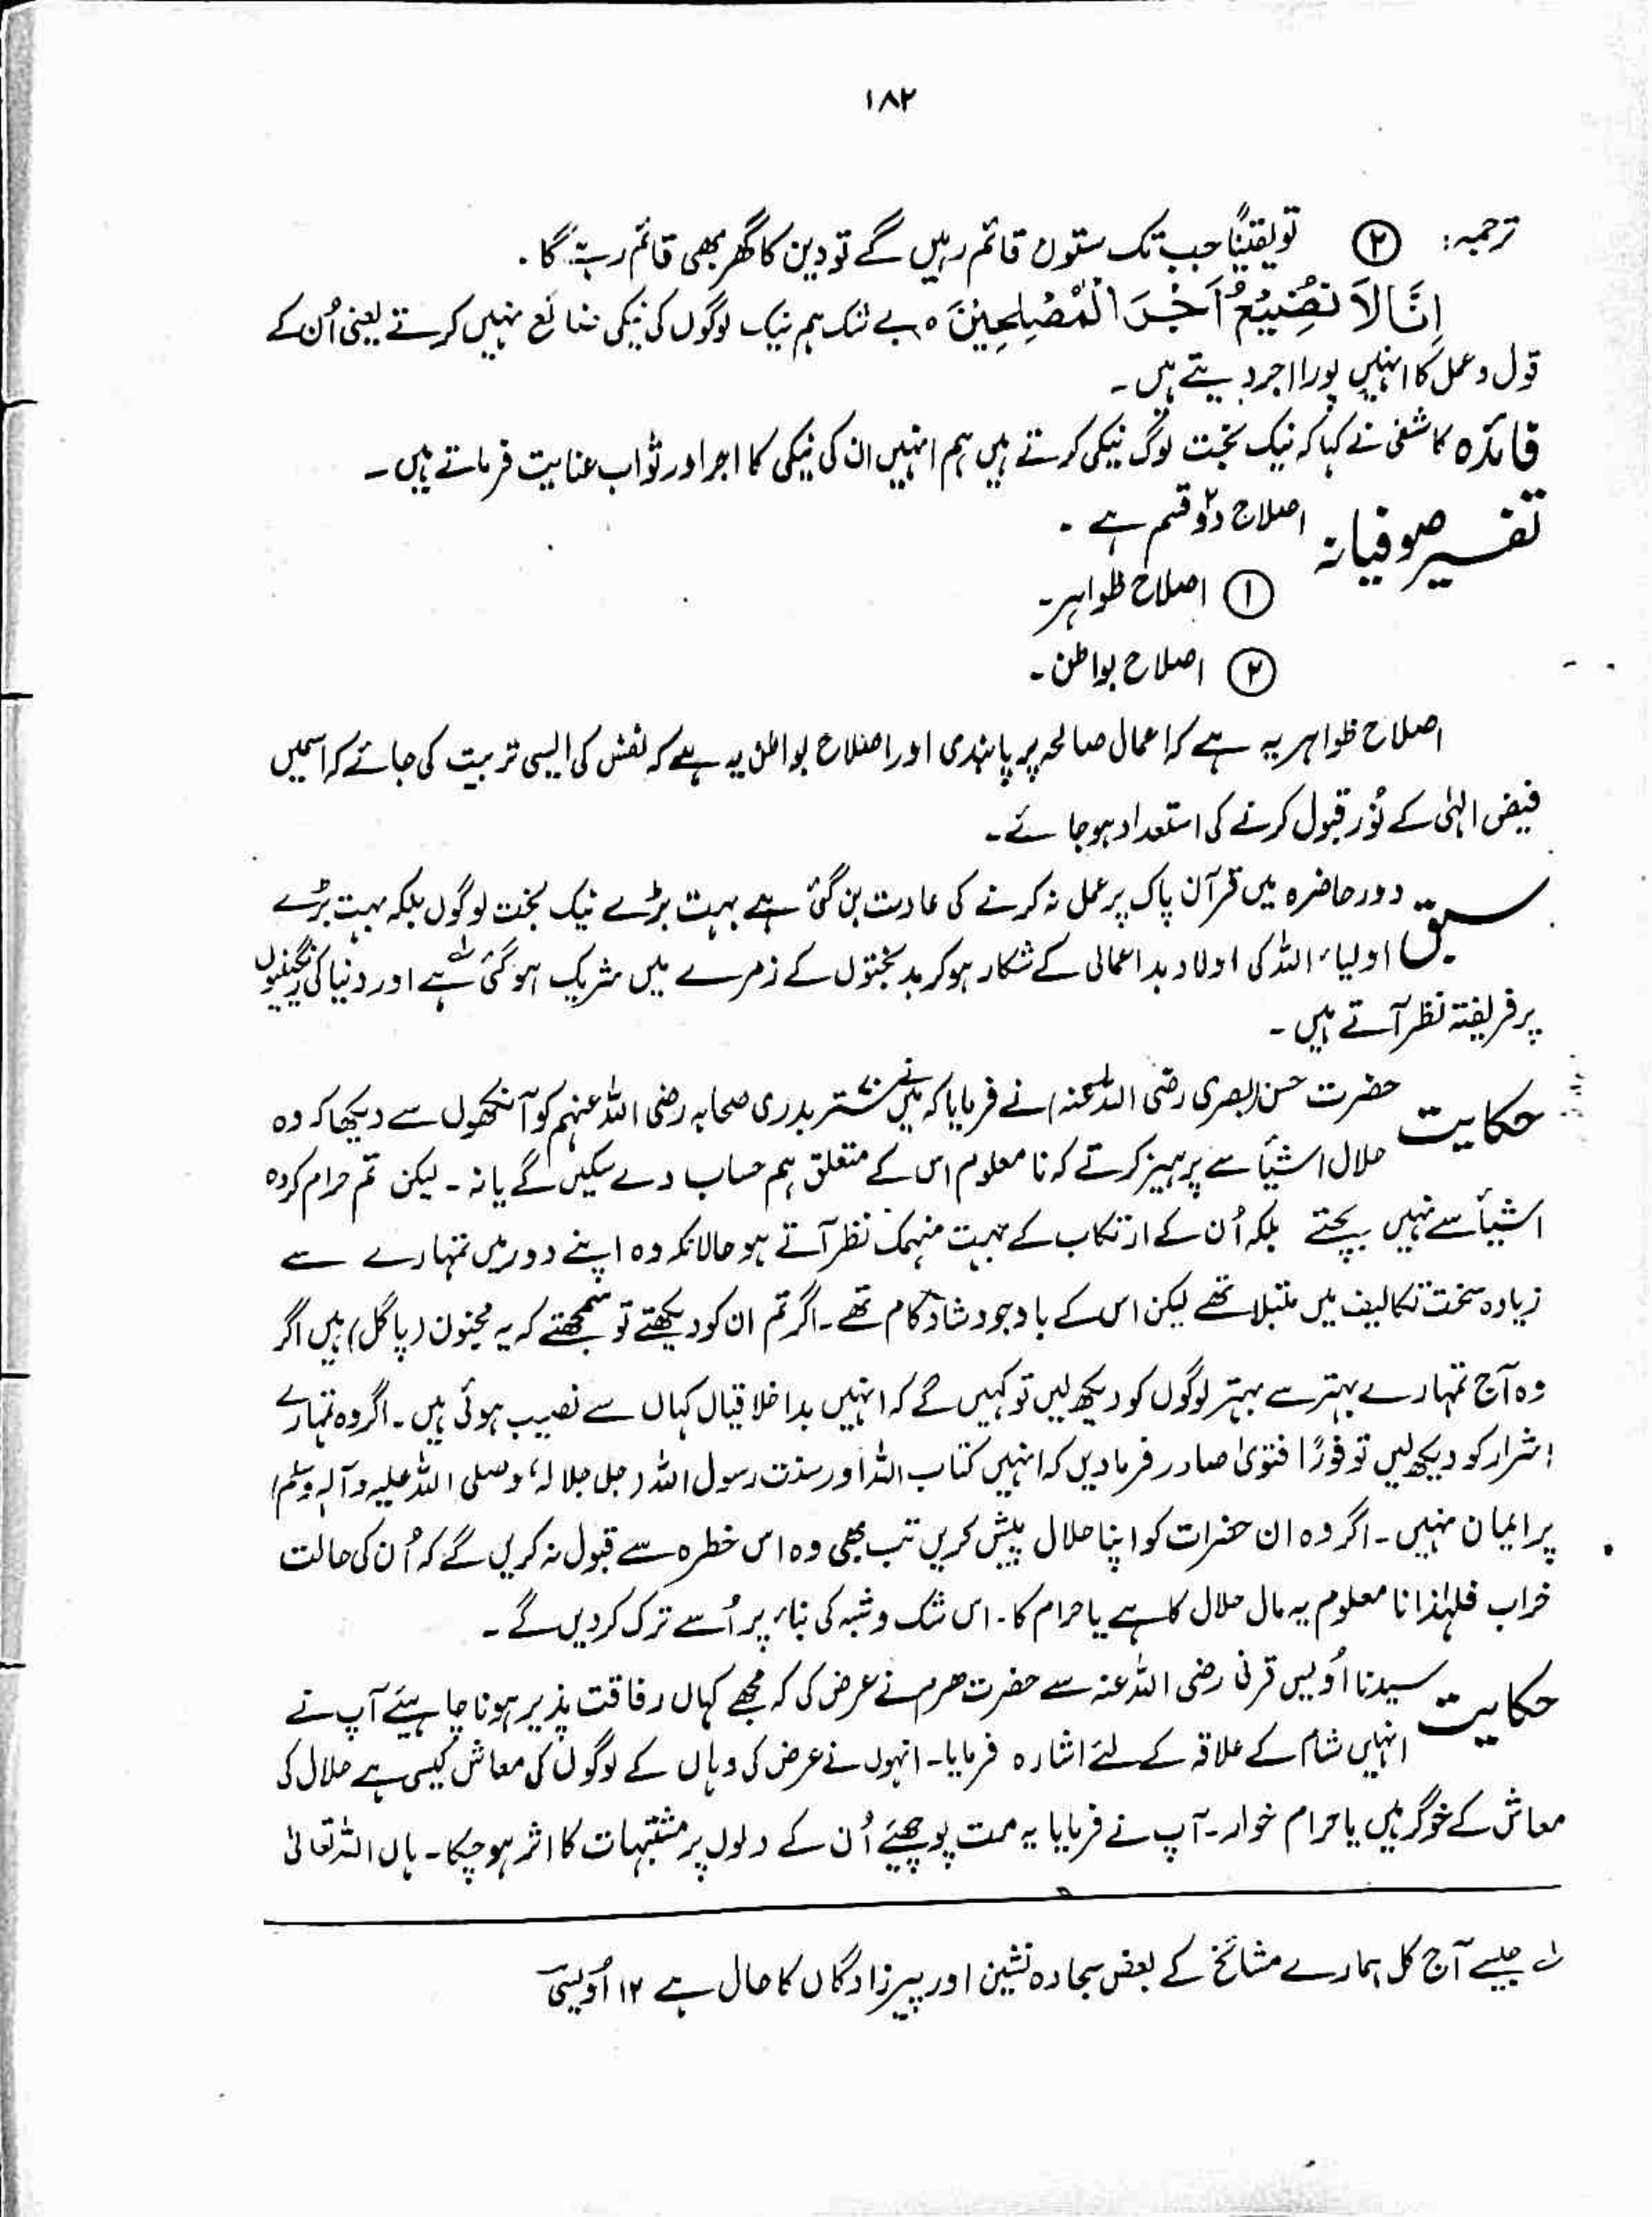 ۱۸۲
ترجمہ: ② تو یقیناً جب تک ستون قائم رہیں گے تو دین کا گھر بھی قائم رہے گا ۔
اِنَّا لَا نُضِیْعُ اَجْرَ الْمُصْلِحِیْنَ ہ بے شک ہم نیک لوگوں کی نیکی ضائع نہیں کرتے یعنی اُن کے
قول و عمل کا انہیں پورا اجر دیتے ہیں ۔
فائدہ کاشفی نے کہا کہ نیک بخت لوگ نیکی کرتے ہیں ہم انہیں ان کی نیکی کا اجر اور ثواب عنایت فرماتے ہیں ۔
تفسیر صوفیانہ اصلاح دو۲ قسم ہے ۔
① اصلاح ظواہر ۔
② اصلاح بواطن ۔
اصلاح ظواہر یہ ہے کہ اعمال صالحہ پر پابندی اور اصلاح بواطن یہ ہے کہ نفس کی ایسی تربیت کی جائے کہ اسمیں
فیض الہٰی کے نُور قبول کرنے کی استعداد ہو جائے ۔
سبق دور حاضرہ میں قرآن پاک پر عمل نہ کرنے کی عادت بن گئی ہے بہت بڑے نیک بخت لوگوں بلکہ بہت بڑے
اولیاء اللہ کی اولاد بد اعمالی کے شکار ہو کر بدبختوں کے زمرے میں شریک ہو گئی ہے لہ اور دنیا کی رنگینیوں
پر فریفتہ نظر آتے ہیں ۔
حکایت حضرت حسن البصری (رضی اللہ عنہ) نے فرمایا کہ میں نے ۷۰ ستر بدری صحابہ رضی اللہ عنہم کو آنکھوں سے دیکھا کہ وہ
حلال اشیأ سے پرہیز کرتے کہ نا معلوم اس کے متعلق ہم حساب دے سکیں گے یا نہ ۔ لیکن تم حرام کردہ
اشیأ سے نہیں بچتے بلکہ اُن کے ارتکاب کے بہت منہمک نظر آتے ہو حالانکہ وہ اپنے دور میں تمہارے سے
زیادہ سخت تکالیف میں مبتلا تھے لیکن اس کے باوجود شاد کام تھے ۔ اگر تم ان کو دیکھتے تو سمجھتے کہ یہ مجنون (پاگل) ہیں اگر
وہ آج تمہارے بہتر سے بہتر لوگوں کو دیکھ لیں تو کہیں گے کہ انہیں بد اخلاقیاں کہاں سے نصیب ہوئی ہیں ۔ اگر وہ تمہارے
اشرار کو دیکھ لیں تو فورًا فتویٰ صادر فرما دیں کہ انہیں کتاب اللہ اور سنت رسول اللہ (جل جلالہ، وصلی اللہ علیہ وآلہ وسلم)
پر ایمان نہیں ۔ اگر وہ ان حضرات کو اپنا حلال پیش کریں تب بھی وہ اس خطرہ سے قبول نہ کریں گے کہ اُن کی حالت
خراب فلہٰذا نا معلوم یہ مال حلال کا ہے یا حرام کا ۔ اس شک و شبہ کی بناء پر اُسے ترک کر دیں گے ۔
حکایت سیدنا اُویس قرنی رضی اللہ عنہ سے حضرت ھرم نے عرض کی کہ مجھے کہاں رفاقت پذیر ہونا چاہیئے آپ نے
انہیں شام کے علاقہ کے لئے اشارہ فرمایا ۔ انہوں نے عرض کی وہاں کے لوگوں کی معاش کیسی ہے حلال کی
معاش کے خوگر ہیں یا حرام خوار ۔ آپ نے فرمایا یہ مت پوچھیئے اُن کے دلوں پر مشتبہات کا اثر ہو چکا ۔ ہاں اللہ تعالیٰ
لہ جیسے آج کل ہمارے مشائخ کے بعض سجادہ نشین اور پیرزادگاں کا حال ہے ۱۲ اُویسی